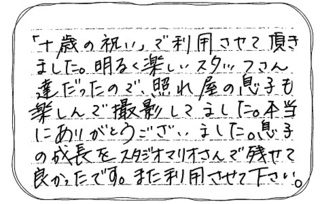 「十歳の祝い」で利用させて頂き
ました。明るく楽しいスタッフさん
達だったので、照れ屋の息子も
楽しんで撮影してました。本当
にありがとうございました。息子
の成長をスタジオマリオさんで残せて
良かったです。また利用させて下さい。